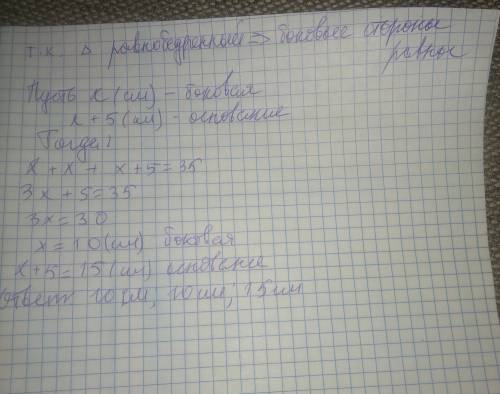 т.к. Δ равнобедренный ⇒ боковые стороны
равны
Пусть x (см) - боковая
x + 5 (см) - основание
Тогда:
x + x + x + 5 = 35
3x + 5 = 35
3x = 30
x = 10 (см) боковая
x + 5 = 15 (см) основание
Ответ 10 см, 10 см; 15 см